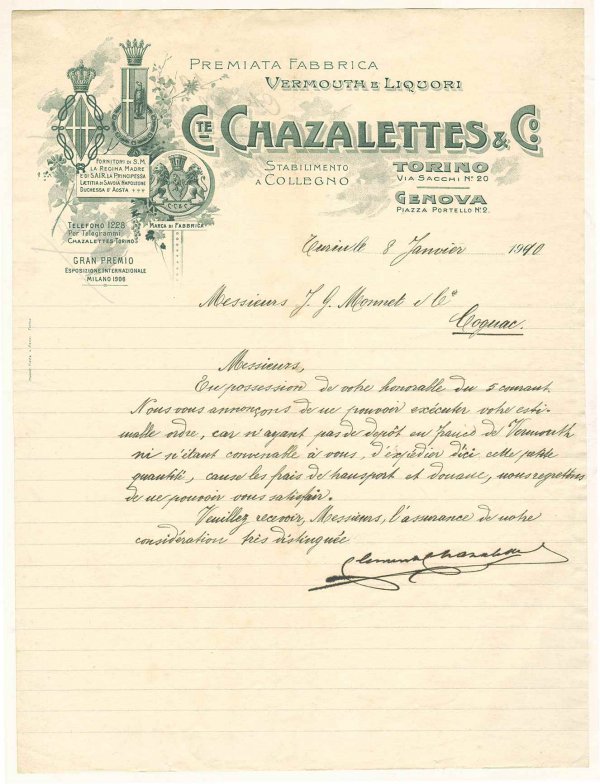 PREMIATA FABBRICA
VERMOUTH E LIQUORI
CTE CHAZALETTES & CO.
STABILIMENTO
A COLLEGNO
TORINO
VIA SACCHI No 20
GENOVA
PIAZZA PORTELLO No 2.
FORNITORI DI S.M.
LA REGINA MADRE
E DI S.A.I.R. LA PRINCIPESSA
LAETITIA DI SAVOIA NAPOLEONE
DUCHESSA D'AOSTA
MARCA DI FABBRICA
TELEFONO 1228
Per Telegrammi
CHAZALETTES TORINO
GRAN PREMIO
ESPOSIZIONE INTERNAZIONALE
MILANO 1906
Turin le 8 Janvier 1910
Messieurs J. G. Monnet & Co
Cognac.
Messieurs,
En possession de votre honorable du 5 courant
Nous vous annonçons de ne pouvoir exécuter votre esti-
mable ordre, car n'ayant pas de depôt en france de Vermouth
ni n'étant convenable à vous, d'éxpedier d'ici cette petite
quantité, cause les frais de transport et douane, nous regrettons
de ne pouvoir vous satisfair.
Veuillez recevoir, Messieurs, l'assurance de notre
considération très distinguée